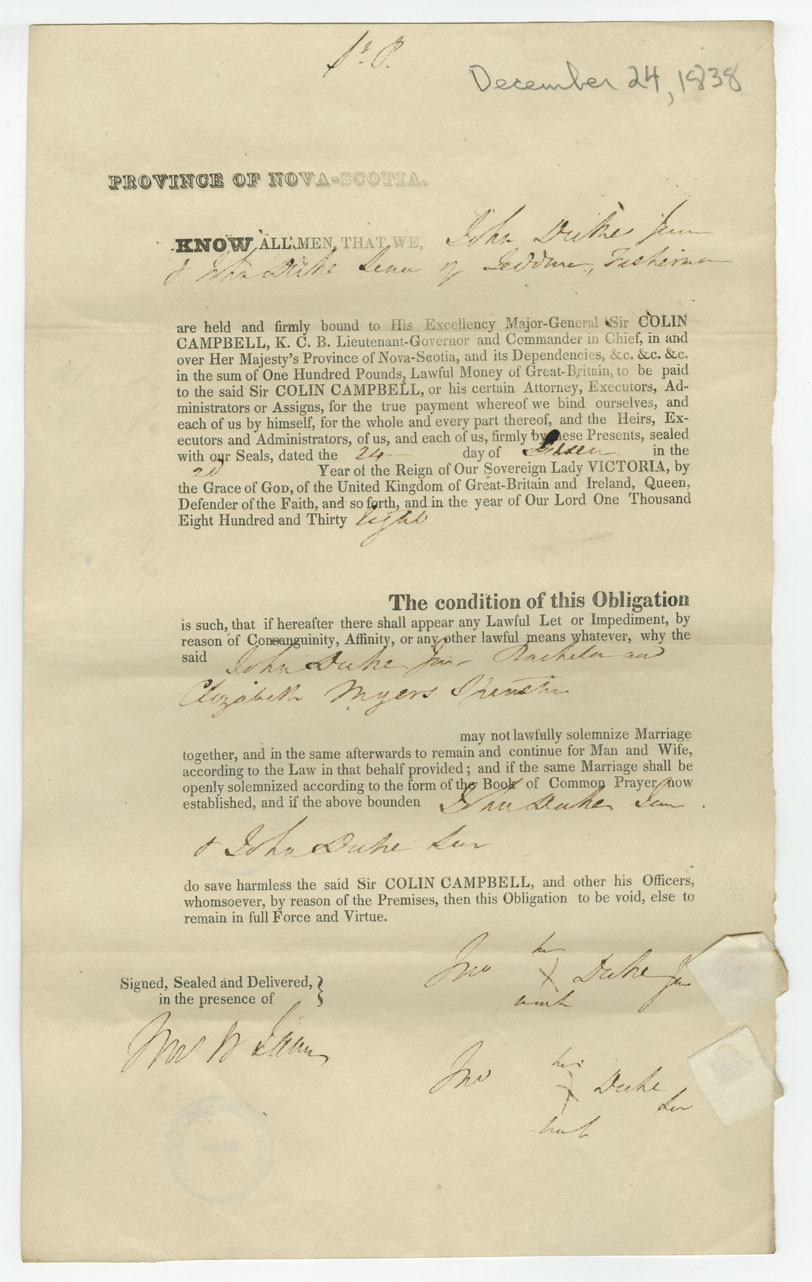 December 24, 1838
PROVINCE OF NOVA-SCOTIA.
KNOW ALL MEN, THAT WE, John Duke Junr
& John Duke Senr of Jeddore, Fisherman
are held and firmly bound to His Excellency Major-General Sir COLIN
CAMPBELL, K. C. B. Lieutenant-Governor and Commander in Chief, in and
over Her Majesty's Province of Nova-Scotia, and its Dependencies, &c. &c. &c.
in the sum of One Hundred Pounds, Lawful Money of Great-Britain, to be paid
to the said Sir COLIN CAMPBELL, or his certain Attorney, Executors, Ad-
ministrators or Assigns, for the true payment whereof we bind ourselves, and
each of us by himself, for the whole and every part thereof, and the Heirs, Ex-
ecutors and Administrators, of us, and each of us, firmly by these Presents, sealed
with our Seals, dated the 24 day of in the
2d Year of the Reign of Our Sovereign Lady VICTORIA, by
the Grace of GOD, of the United Kingdom of Great-Britain and Ireland, Queen,
Defender of the Faith, and so forth, and in the year of Our Lord One Thousand
Eight Hundred and Thirty Eight
The condition of this Obligation
is such, that if hereafter there shall appear any Lawful Let or Impediment, by
reason of Consanguinity, Affinity, or any other lawful means whatever, why the
said John Duke Junr Bachelor and
Elizabeth Myers Spinster
may not lawfully solemnize Marriage
together, and in the same afterwards to remain and continue for Man and Wife,
according to the Law in that behalf provided; and if the same Marriage shall be
openly solemnized according to the form of the Book of Common Prayer now
established, and if the above bounden John Duke Jun
& John Duke Sen
do save harmless the said Sir COLIN CAMPBELL, and other his Officers,
whomsoever, by reason of the Premises, then this Obligation to be void, else to
remain in full Force and Virtue.
Signed, Sealed and Delivered,
in the presence of
his
Jno X Duke Jun
mark
his
Jno X Duke
Sen
mark